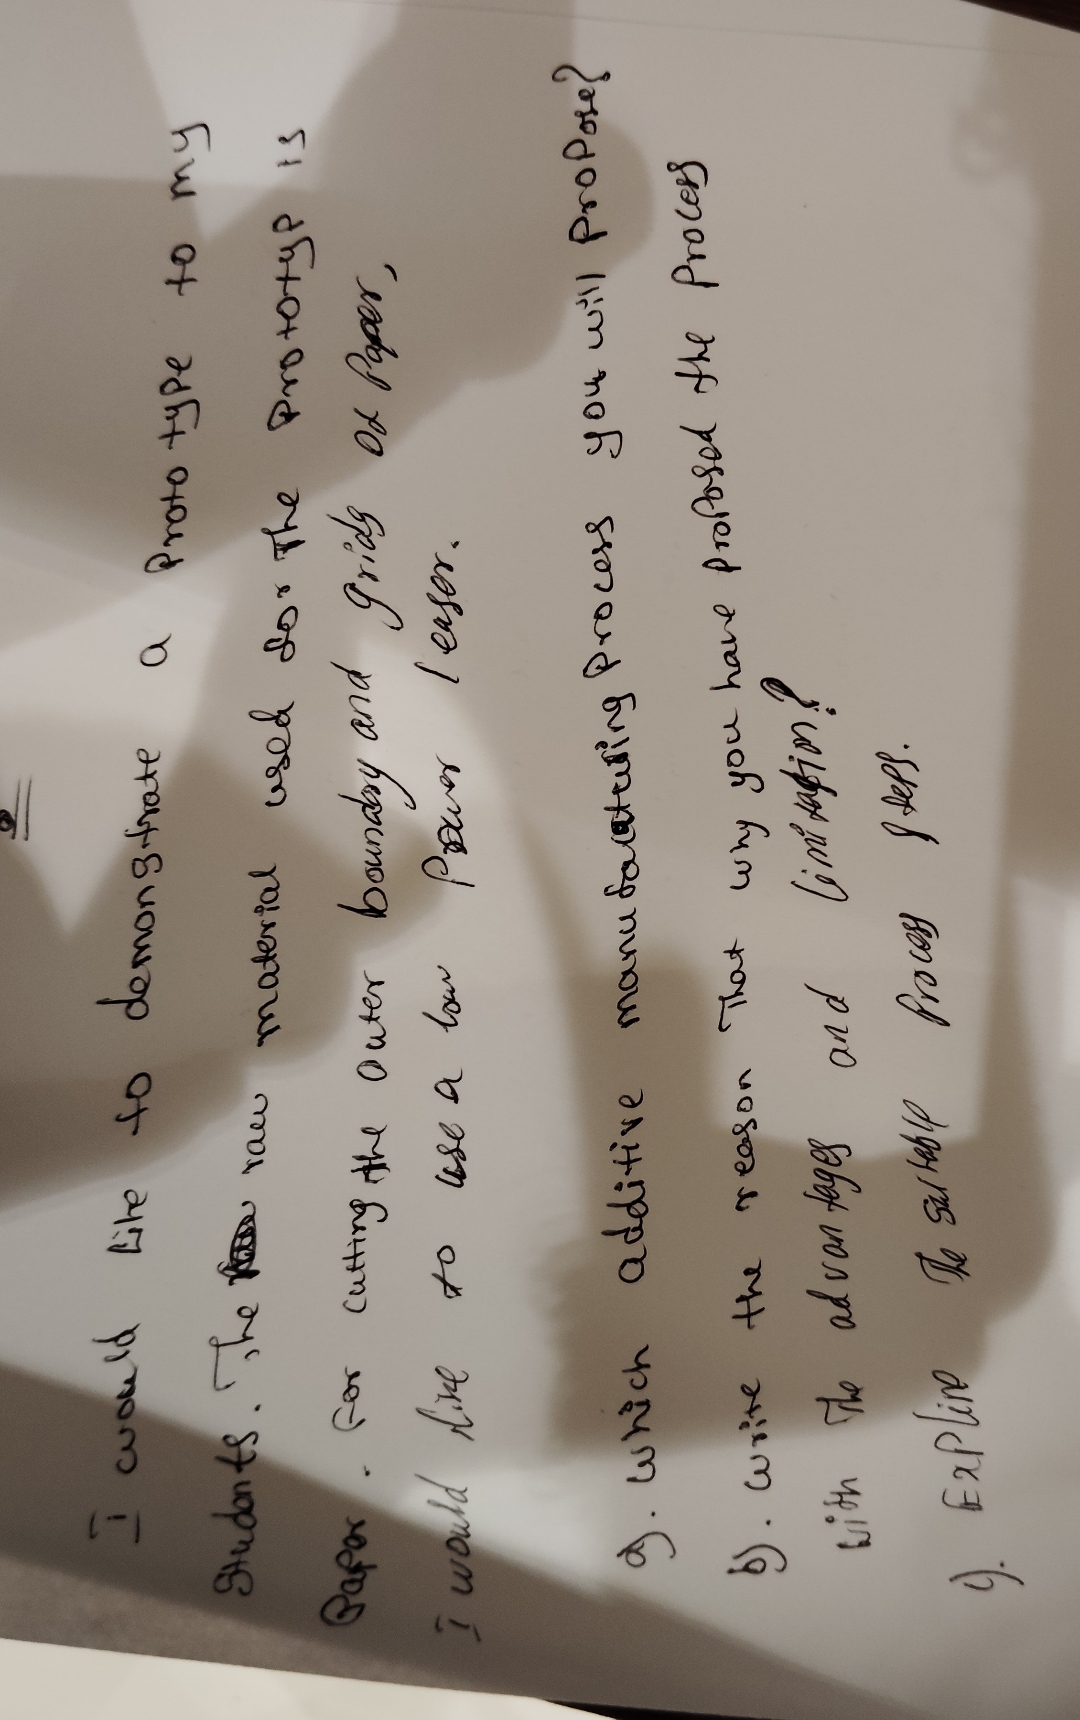 I would like to demonstrate a prototype to my
students. The raw material used for the prototyp is
Paper. For cutting the outer boundry and grids of Paper,
I would like to use a low Power leaser.
a). which additive manufacturing process you will propose?
b). write the reason that why you have proposed the process
with The advantages and limitation?
c). Expline The suitable process steps.